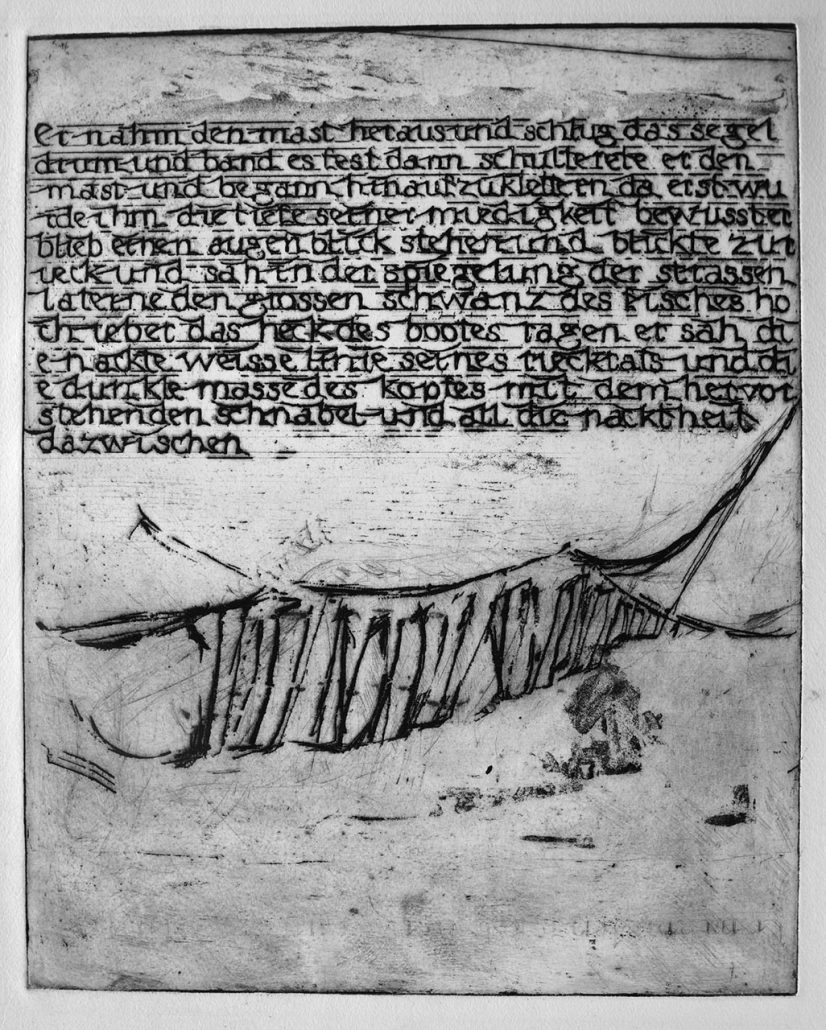 er nahm den mast heraus und schlug das segel
drum und band es fest dann schulterete er den
mast und begann hinaufzuklettren da erst wu
rde ihm die tiefe seiner muedigkeit bewusst er
blieb einen augenblick stehen und blickte zur
ueck und sah in der spiegelung der strassen
laterne den grossen schwanz des fisches ho
ch ueber das heck des bootes ragen er sah di
e nackte weisse linie seines rueckrats und di
e dunkle masse des kopfes mit dem hervor
stehenden schnabel und all die nacktheit
dazwischen